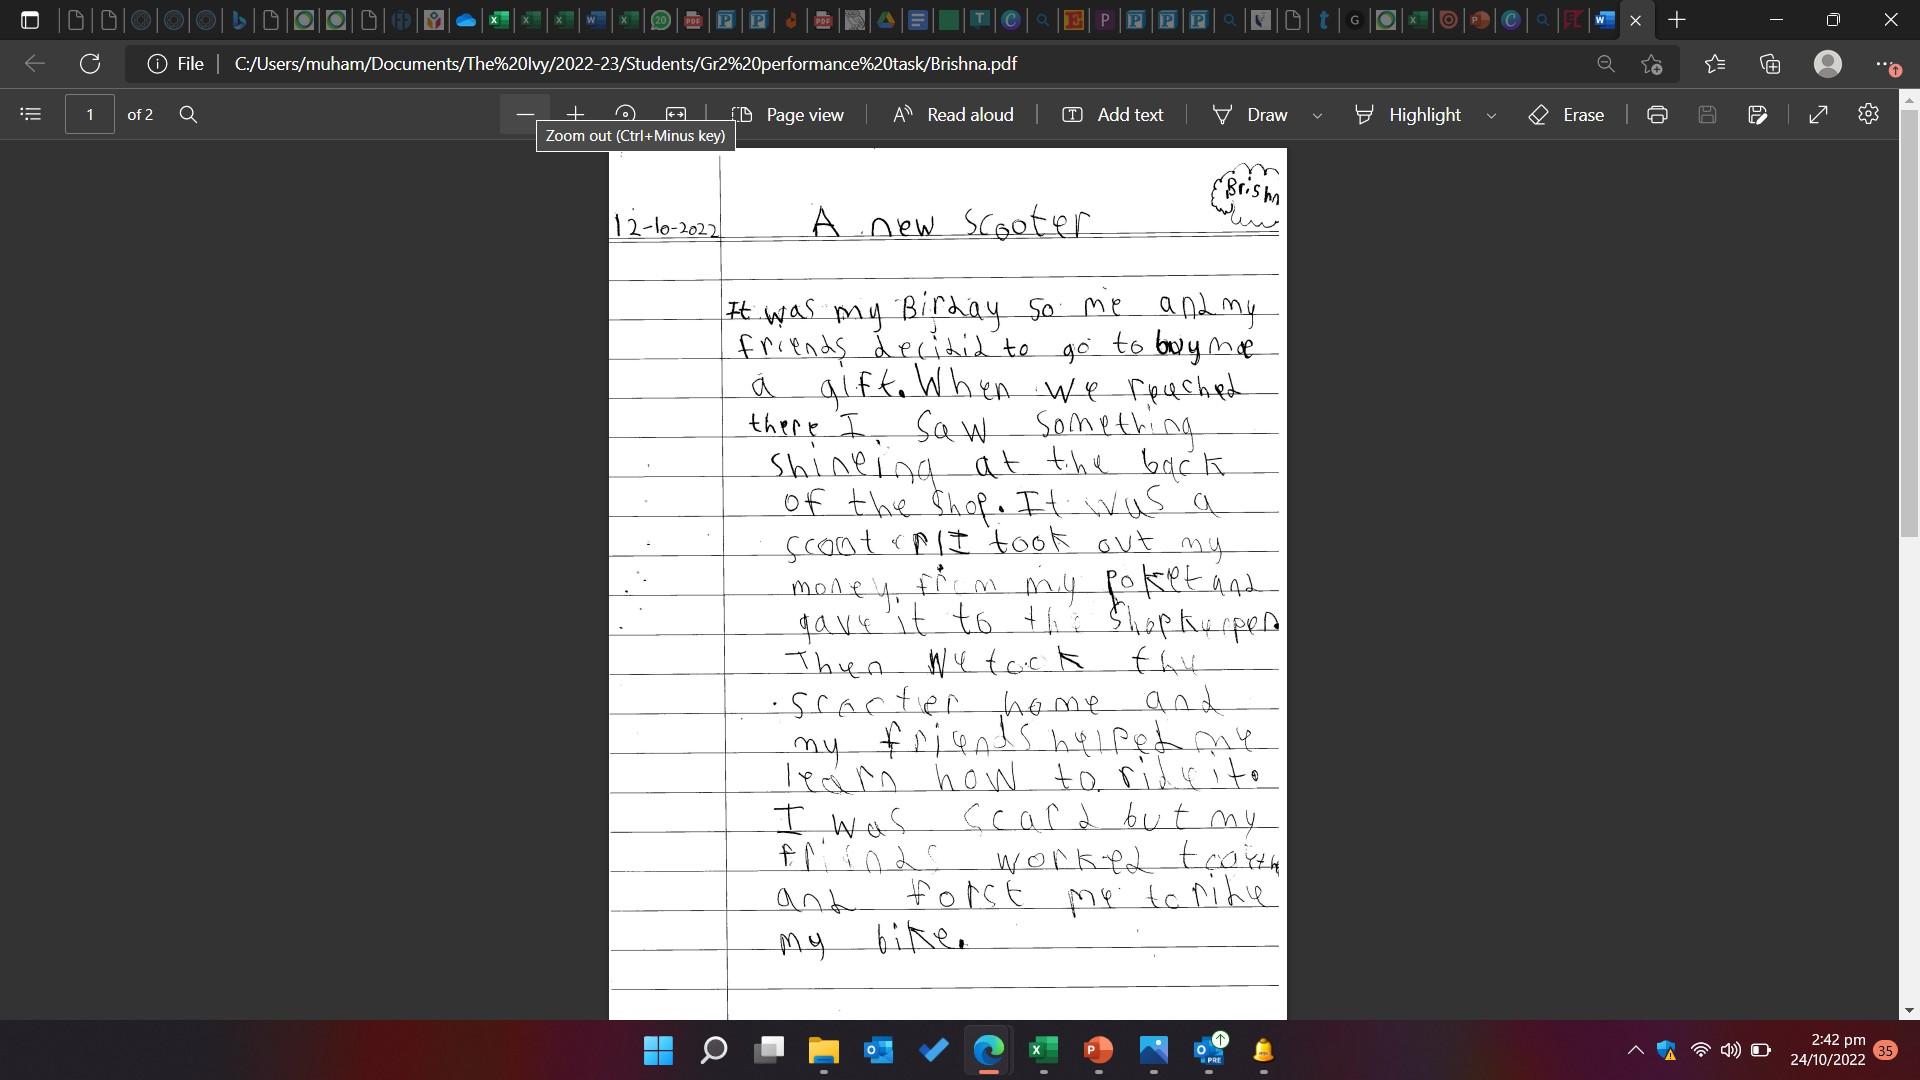 File
C:/Users/muham/Documents/The%20Ivy/2022-23/Students/Gr2%20performance%20task/Brishna.pdf
1 of 2
Page view
Read aloud
Add text
Draw
Highlight
Erase
Zoom out (Ctrl+Minus key)
Brishn
12-10-2022 A new scooter
It was my Birday so me and my
friends decidid to go to buy me
a gift. When we reached
there I saw something
shineing at the back
of the shop. It was a
I took out my
money from my poket and
gave it to the
Then we took the
scooter home and
my friends helped me
learn how to ride it.
I was scard but my
friends worked
and forst me to ride
my bike.
2:42 pm
24/10/2022
35